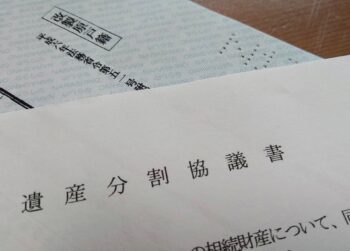 改製原戸籍
平成六年法務省令第五一号
遺産分割協議書
の相続財産について、同